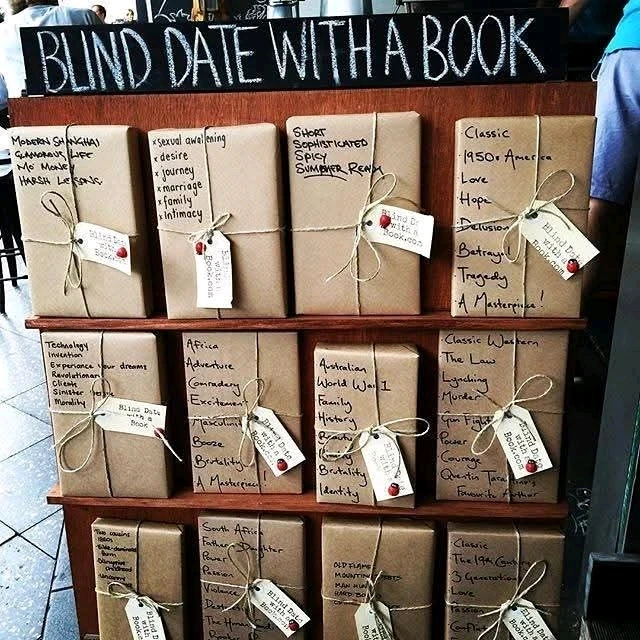 BLIND DATE WITH A BOOK
MODERN SHANGHAI
GLAMOROUS LIFE
MO' MONEY
HARSH LESSONS
Blind Date
with a
Book.com
x sexual awakening
x desire
x journey
x marriage
x family
x intimacy
Book.com
SHORT
SOPHISTICATED
SPICY
SUMMER READ
Blind Date
with a
Book.com
Classic
1950s America
Love
Hope
Delusion
Betrayal
Tragedy
A Masterpiece!
Blind Date
with a
Book.com
Technology
Invention
Experience your dreams
Revolutionary
Clients
Sinister
Morality
Blind Date
with a
Book.
Africa
Adventure
Comradery
Excitement
Masculinity
Booze
Brutality
A Masterpiece!
Blind Date
with a
Book.com
Australian
World War 1
Family
History
Brutality
Identity
Blind Date
with a
Book.com
Classic Western
The Law
Lynching
Murder
Gun Fights
Power
Courage
Quentin Tarantino's
Favourite Author
Blind Date
with a
Book.com
Two cousins
1960s
farm
childhood
Blind Date
with a
Book
South Africa
Father Daughter
Power
Passion
Violence
The Human
Blind Date
with a
Book.com
OLD FLAME
MOUNTING
MAN
Blind Date
with a
Book.com
Classic
The 19th Century
3 Generations
Love
Passion
Conflict
Blind Date
with a
Book.com